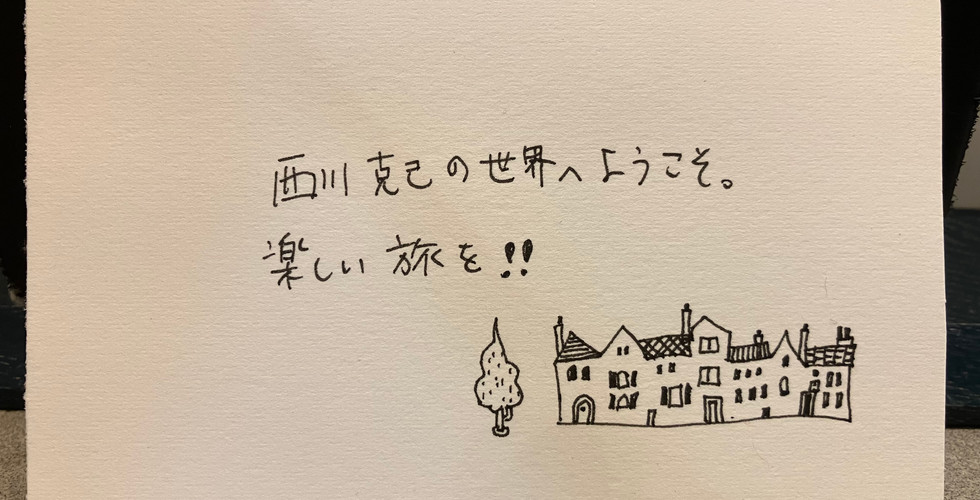 西川克己の世界へようこそ。
楽しい旅を!!